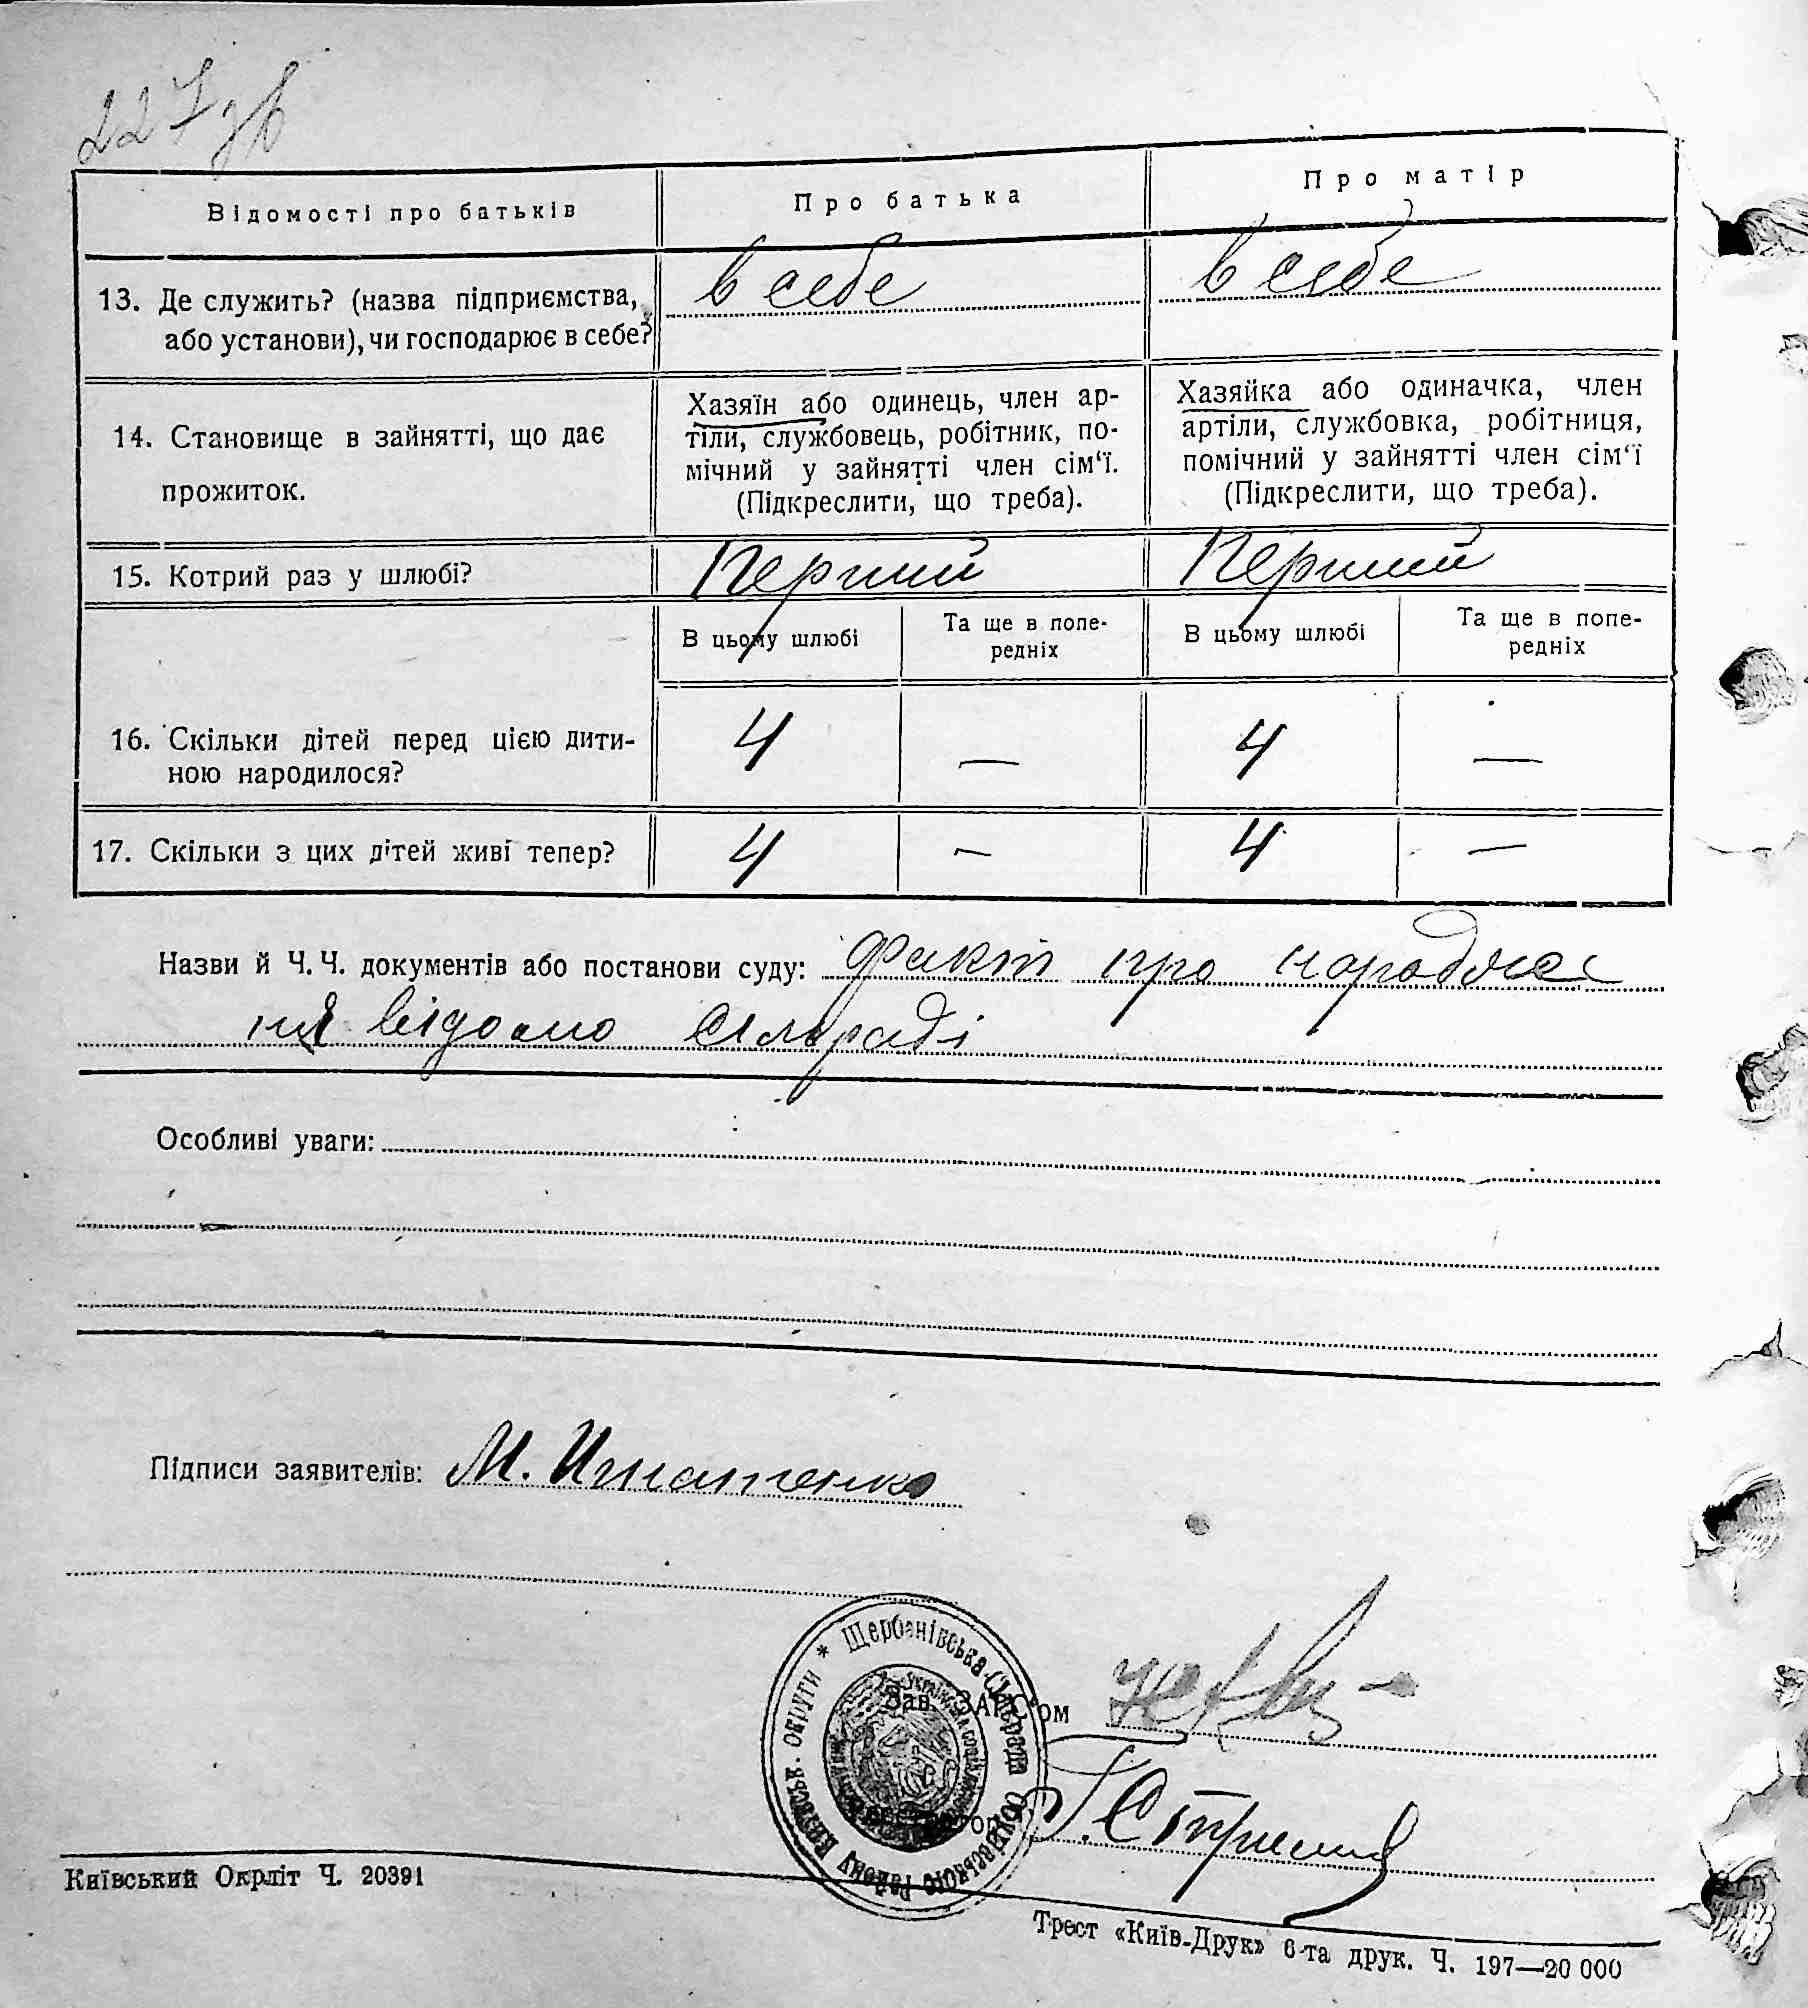 227 зв
Відомості про батьків
Про батька
Про матір
13. Де служить? (назва підприємства,
або установи), чи господарює в себе?
в себе
в себе
14. Становище в зайнятті, що дає
прожиток.
Хазяїн або одинець, член ар-
тіли, службовець, робітник, по-
мічний у зайнятті член сім‘ї.
(Підкреслити, що треба).
Хазяйка або одиначка, член
артіли, службовка, робітниця,
помічний у зайнятті член сім‘ї
(Підкреслити, що треба).
15. Котрий раз у шлюбі?
Перший
Перший
В цьому шлюбі
Та ще в попе-
редніх
В цьому шлюбі
Та ще в попе-
редніх
16. Скільки дітей перед цією дити-
ною народилося?
4
—
4
—
17. Скільки з цих дітей живі тепер?
4
—
4
—
Назви й Ч. Ч. документів або постанови суду: факт про народжен
ня відомо сільраді
Особливі уваги:
Підписи заявителів: М. Игнатенко
Щербанівська Сільрада Обухівського району Київськ. округи *
Зав. ЗАГС‘ом
Київський Окрліт Ч. 20391
Трест «Київ-Друк» 6-та друк. Ч. 197—20 000